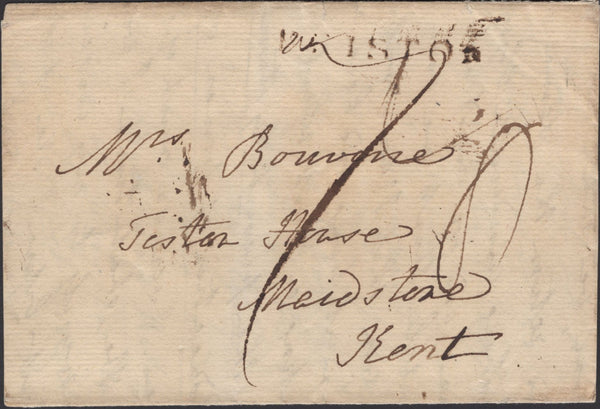 BRISTOL
Mrs Bouverie
Teston House
Maidstone
Kent